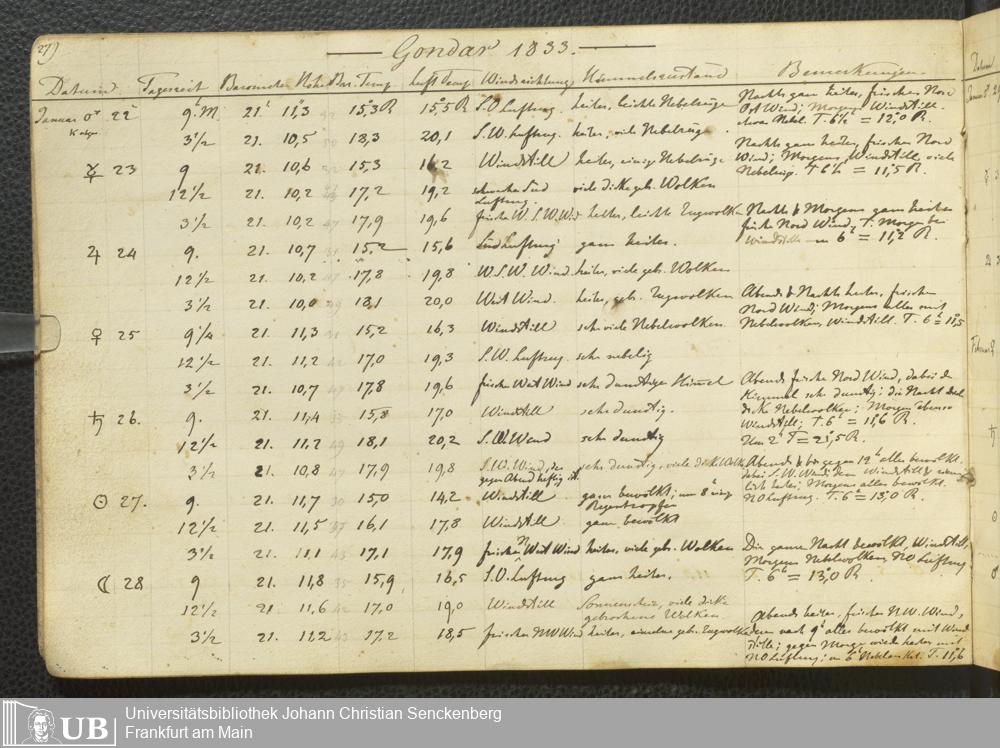 27)
Gondar 1833.
Datum Tagezeit Barometer Höhe Bar. Temp. Luft Temp. Windrichtung Himmelszustand Bemerkungen
Januar ♂ 22 9h M 21" 11,3 15,3 R 15,5 R S.O Luftzug. heiter, leichte Nebelzüge Nachts ganz heiter, frischer Nord
Ost Wind; Morgens Windstill.
etwas Nebel. T. 6½ = 12,0 R.
3½ 21. 10,5 18,3 20,1 S.W. Luftzug. heiter, viele Nebelzüge. Nachts ganz heiter, frischen Nord
☿ 23 9 21. 10,6 15,3 16,2 Windstill heiter, einige Nebelzüge Wind; Morgens, Windstill, viele
Nebelzüg. T 6½ = 11,5 R.
12½ 21. 10,2 17,2 19,2 schwache Süd viele dicke geb. Wolken
Luftzug.
3½ 21. 10,2 17,9 19,6 frische W.S.W. Wind heiter, leichte Zugwolken Nachts & Morgens ganz heiter
frische Nord Wind, T. Morgen bei
♃ 24 9. 21. 10,7 15,2 15,6 Süd Luftzug ganz heiter. Windstille um 6h = 11,2 R.
12½ 21. 10,2 17,8 19,8 W.S.W. Wind. heiter, viele geb. Wolken
3½ 21. 10,0 18,1 20,0 West Wind. heiter, geb. Zugwolken Abends & Nachts heiter, frischen
Nord Wind; Morgens alles mit
♀ 25 9¼ 21. 11,3 15,2 16,3 Windstill sehr viele Nebelwolken. Nebelwolken, Windstill. T. 6h = 11,5
12½ 21. 11,2 17,0 19,3 S.W. Luftzug. sehr nebelig
3½ 21. 10,7 17,8 19,6 frischer West Wind sehr dunstiger Himmel Abends frische Nord Wind, dabei der
Himmel sehr dunstig; die Nacht durch
♄ 26. 9. 21. 11,4 15,8 17,0 Windstill sehr dunstig. dicke Nebelwolken; Morgen ebenso
Windstill; T. 6h = 11,6 R.
12½ 21. 11,2 18,1 20,2 S.W. Wind sehr dunstig Um 2h T = 21,5 R.
3½ 21. 10,8 17,9 19,8 S.W. Wind, der sehr dunstig, viele dicke Wolken Abends & bis gegen 12h alles bewölkt.
gegen Abend heftig ist. dabei S.W. Wind; dann Windstill &
☉ 27. 9. 21. 11,7 15,0 14,2 Windstill ganz bewölkt; um 8h einige lich heiter; Morgens alles bewölkt.
Regentropfen NO Luftzug. T. 6h = 13,0 R.
12½ 21. 11,5 16,1 17,8 Windstill ganz bewölkt
3½ 21. 11,1 17,1 17,9 frischen N West Wind heiter, viele geb. Wolken Die ganze Nacht bewölkt, Windstill,
Morgens Nebelwolken, NO Luftzug
☾ 28 9 21. 11,8 15,9 16,5 S.O. Luftzug ganz heiter. T. 6h = 13,0 R.
12½ 21 11,6 17,0 19,0 Windstill Sonnenschein, viele dicke
gebrochene Wolken
3½ 21. 11,2 17,2 18,5 frischer NW Wind heiter, einzelne geb. Zugwolken Abends heiter, frischer N.W. Wind,
dann nach 9h alles bewölkt mit Wind
stille; gegen Morgen wieder heiter mit
NO Luftzug; um 6h T. 11,6
UB
Universitätsbibliothek Johann Christian Senckenberg
Frankfurt am Main